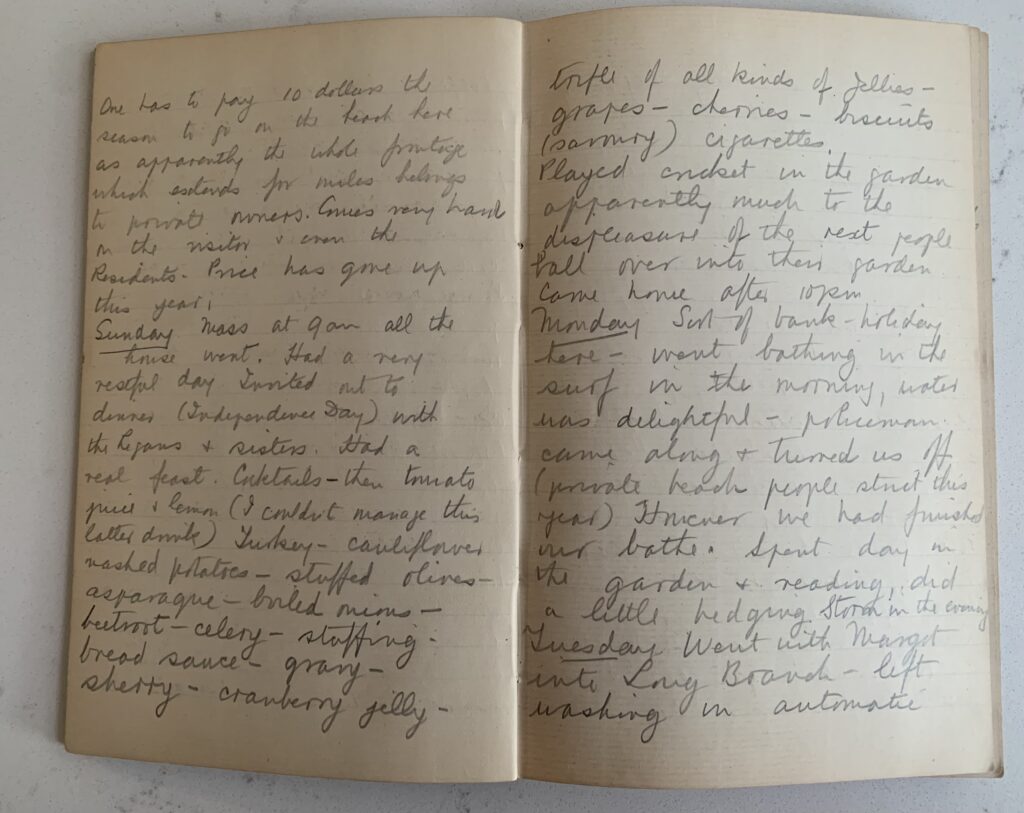 One has to pay 10 dollars the
season to go on the beach here
as apparently the whole frontage
which extends for miles belongs
to private owners. Comes very hard
on the visitor & even the
Residents. Price has gone up
this year.
Sunday Mass at 9am all the
house went. Had a very
restful day Invited out to
dinner (Independence Day) with
the & sisters. Had a
real feast. Cocktails - then tomato
juice & lemon (I couldn't manage this
latter drink) Turkey - cauliflower
mashed potatoes - stuffed olives -
asparague - boiled onions -
beetroot - celery - stuffing -
bread sauce - gravy -
sherry - cranberry jelly -
trifle of all kinds of jellies -
grapes - cherries - biscuits
(savoury) cigarettes.
Played cricket in the garden
apparently much to the
displeasure of the next people
ball over into their garden
came home after 10pm
Monday Sort of bank-holiday
here - went bathing in the
surf in the morning, water
was delightful - policeman
came along & turned us off
(private beach people strict this
year) However we had finished
our bathe. Spent day in
the garden & reading, did
a little hedging Storm in the evening
Tuesday Went with Margot
into Long Branch - left
washing in automatic